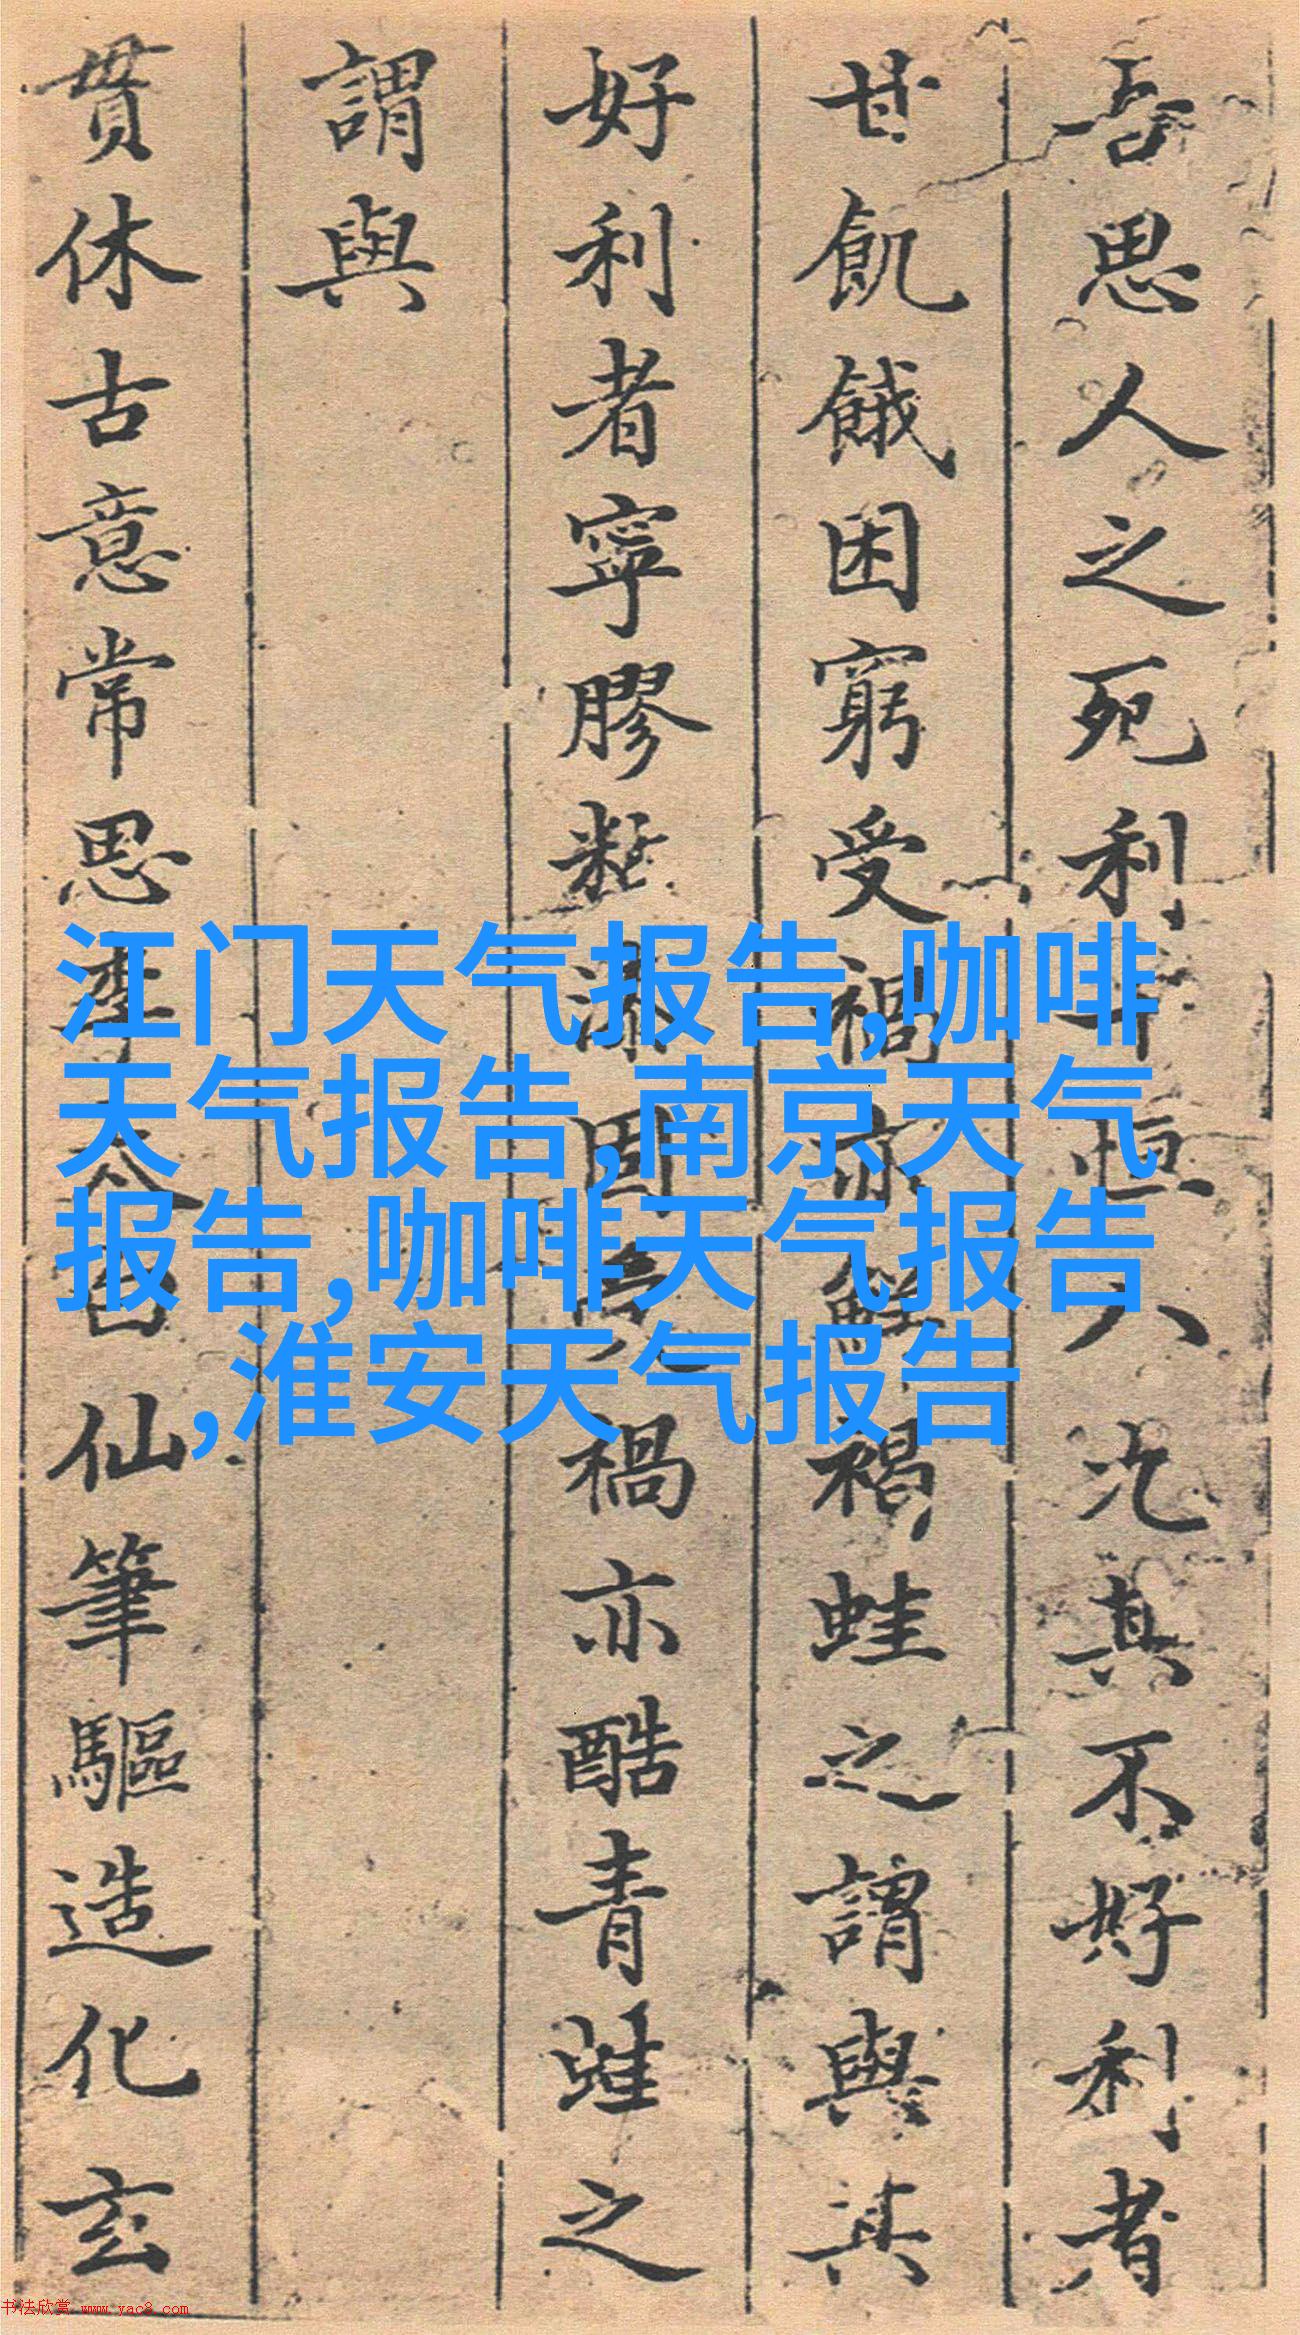 吾思人之死利十恒八況其不好利者
甘飢餓困窮受禍亦鮮褐蛙之謂與其
好利者寧膠黏漆固其禍亦酷青蛙之
謂與
貫休古意常思李太白仙筆驅造化玄
江门天气报告,咖啡
天气报告,南京天气
报告,咖啡天气报告
,淮安天气报告
书法欣赏 www.yac8.com